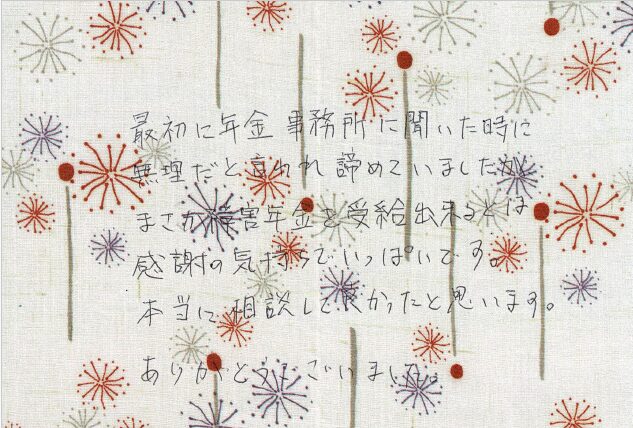 最初に年金事務所に聞いた時に
無理だと言われ諦めていましたが
まさか障害年金を受給出来るとは
感謝の気持ちでいっぱいです。
本当に相談して良かったと思います。
ありがとうございました。